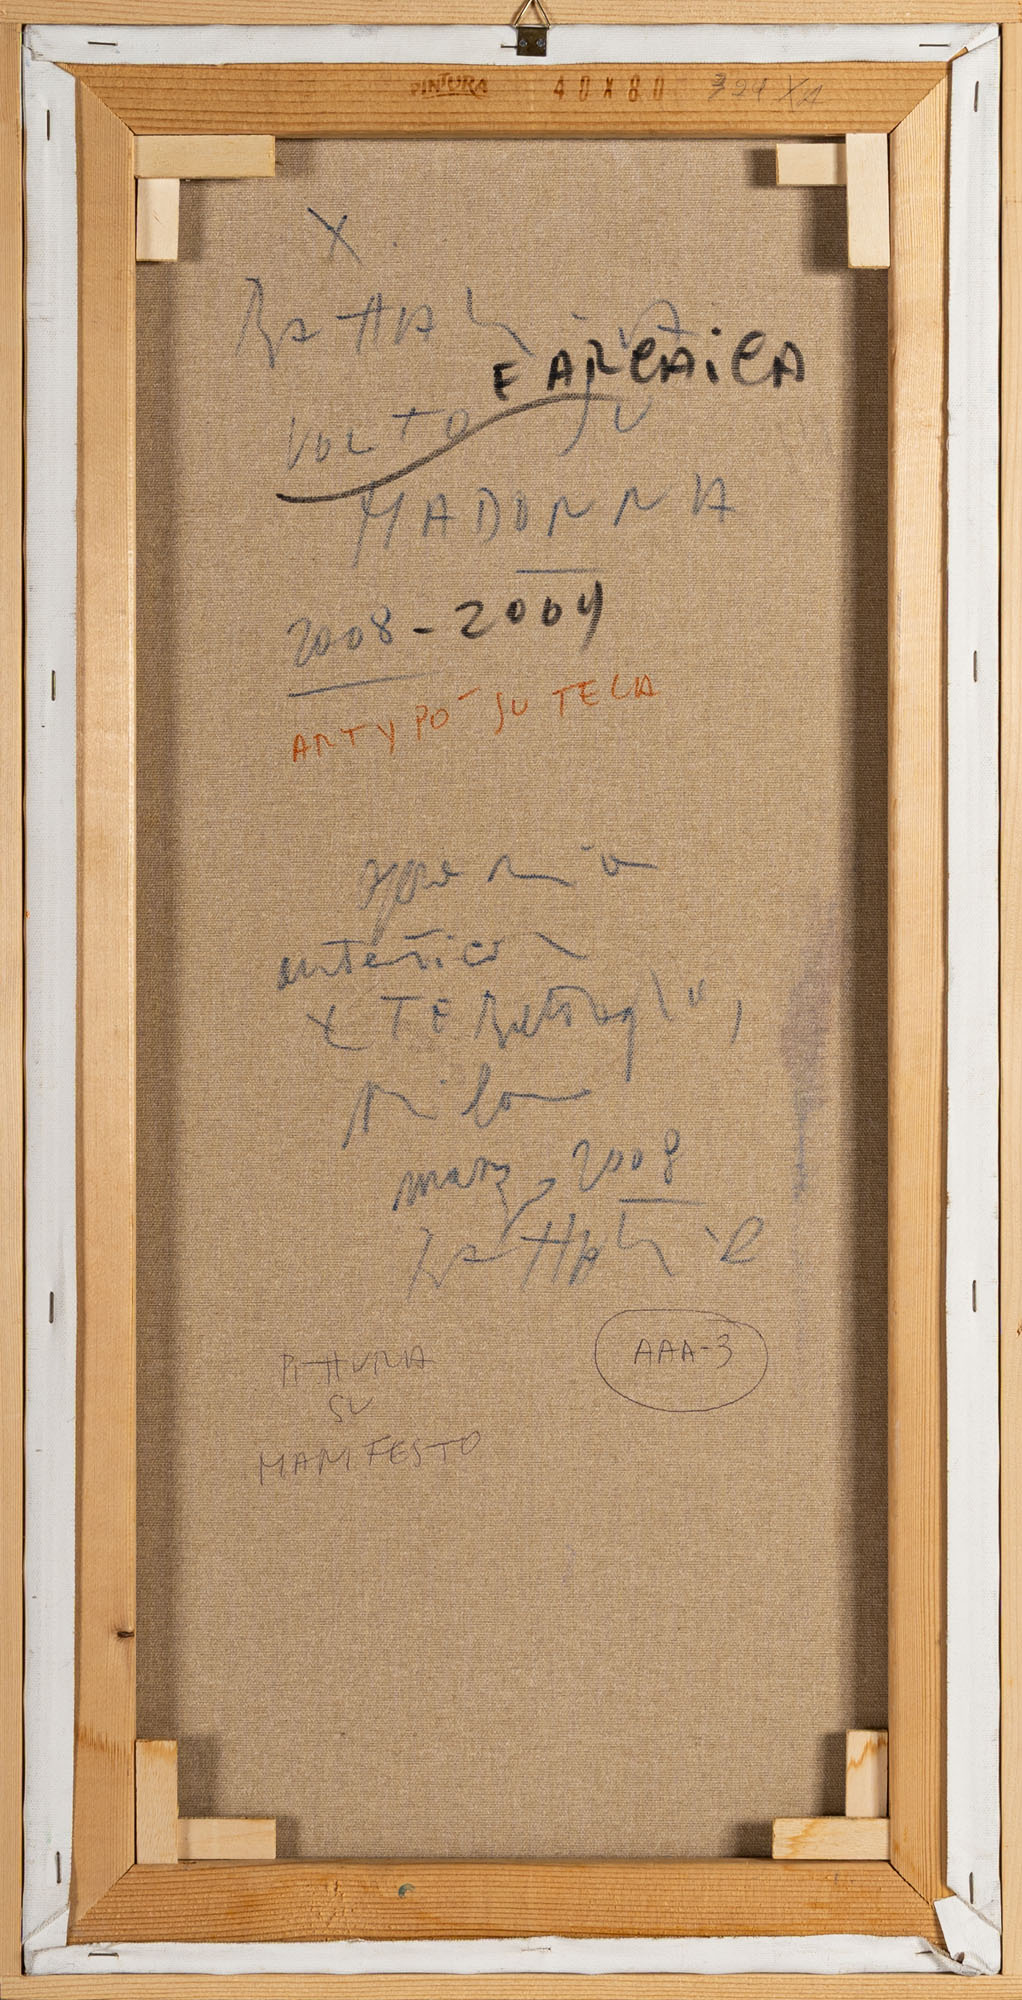 PINTURA 40X80
X
E ARCAICA
VOLTO SU
MADONNA
2008-2009
ARTYPO SU TELA
opera mia
autentica
X TE
Milano
marzo 2008
AAA-3
PITTURA
SU
MANIFESTO